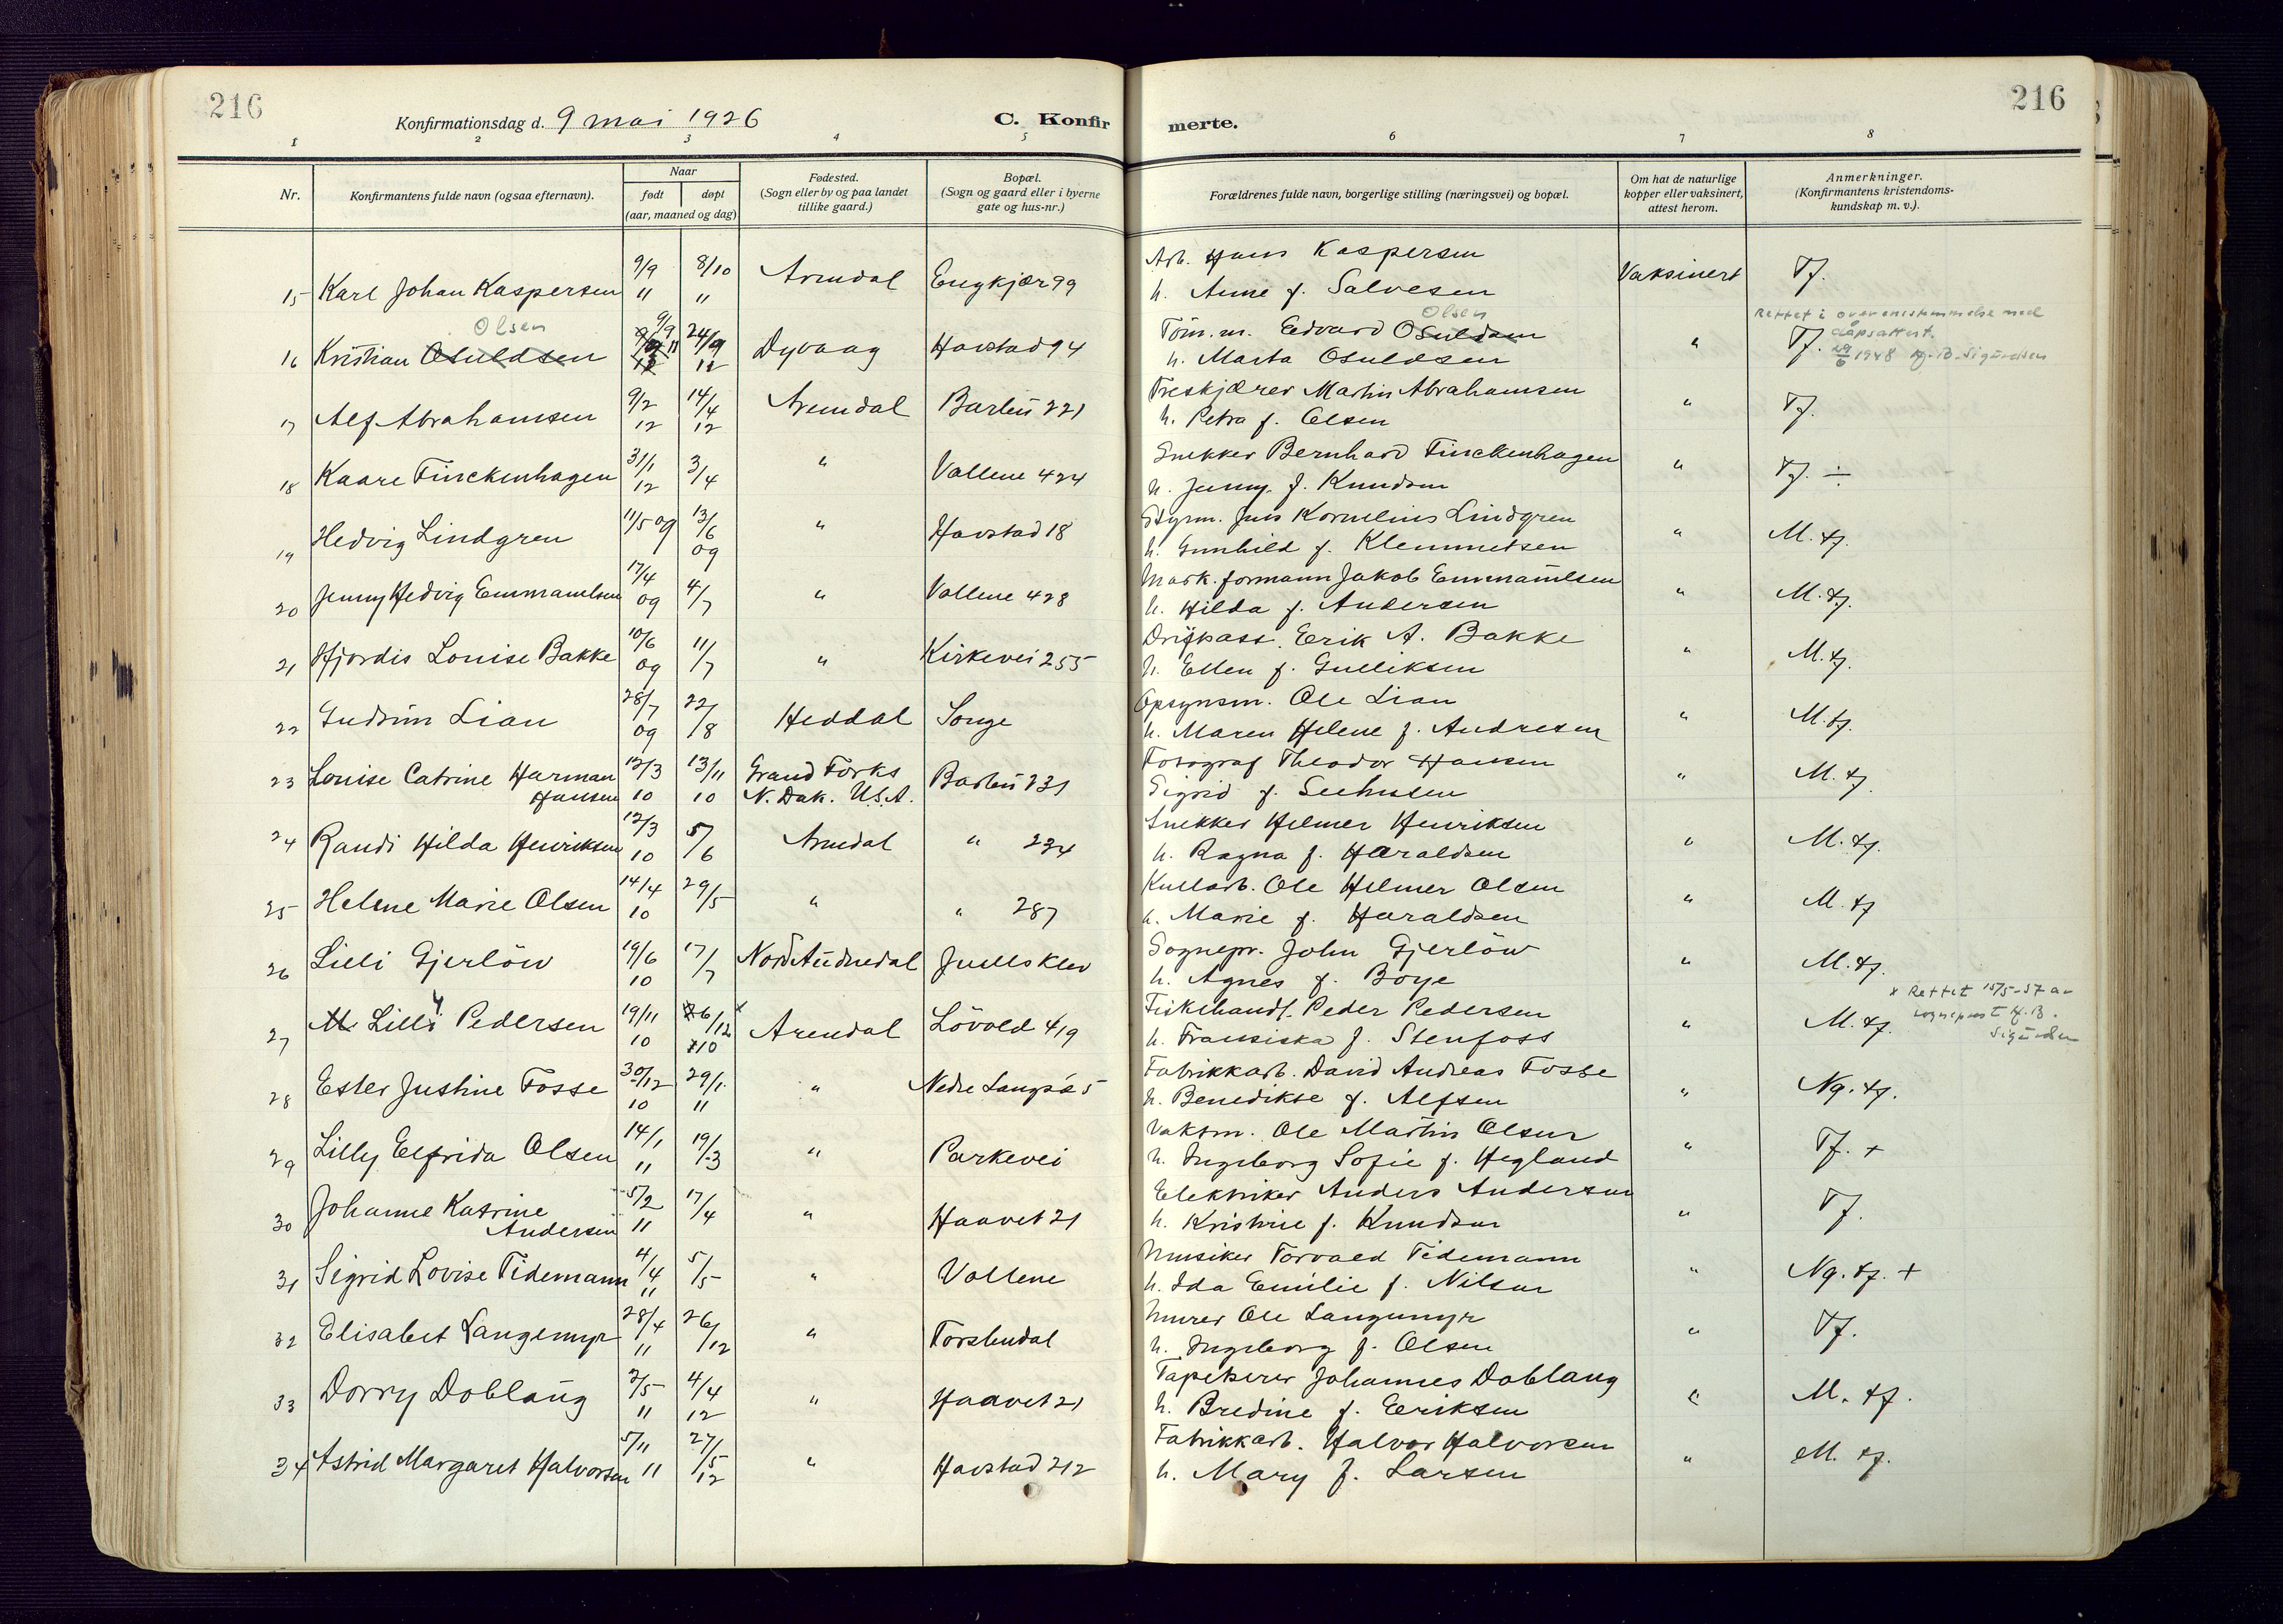 216
216
Konfirmationsdag d. 9 mai 1926
C. Konfir
merte.
1 2 3 4 5 6 7 8
Nr.
Konfirmantens fulde navn (ogsaa efternavn).
Naar
født
døpt
(aar, maaned og dag)
Fødested.
(Sogn eller by og paa landet
tillike gaard.)
Bopæl.
(Sogn og gaard eller i byerne
gate og hus-nr.)
Forældrenes fulde navn, borgerlige stilling (næringsvei) og bopæl.
Om hat de naturlige
kopper eller vaksinert,
attest herom.
Anmerkninger.
(Konfirmantens kristendoms-
kundskap m. v.).
15 Karl Johan Kaspersen 9/9 11 8/10 11 Arendal Engkjær 99 Arb. Hans Kaspersen
h. Anne f. Salvesen Vaksinert Tf.
Olsen
16 Kristian Osuldsen 9/9 11 24/9 12 Dyvaag Havstad 94 Töm.m. Edvard Osuldsen Olsen
h. Marta Osuldsen " Tf.
Rettet i overensstemmelse med
dåpsattest.
29/6 1948 Hj. B. Sigurdsen
17 Alf Abrahamsen 9/2 12 14/4 12 Arendal Barbu 221 Treskjærer Martin Abrahamsen
h. Petra f. Olsen " Tf.
18 Kaare Finckenhagen 31/1 12 3/4 " Vollene 424 Snekker Bernhard Finckenhagen
h. Jenny f. Knudsen " Tf. ÷
19 Hedvig Lindgren 11/5 09 13/6 09 " Havstad 18 Styrm. Jens Kornelius Lindgren
h. Gunhild f. Klemmetsen " M. tf.
20 Jenny Hedvig Emmanuelsen 17/4 09 4/7 " Vollene 428 Mask.formann Jakob Emmanuelsen
h. Hilda f. Andersen " M. tf.
21 Hjørdis Louise Bakke 10/6 09 11/7 " Kirkevei 255 Erik A. Bakke
h. Ellen f. Gulliksen " M. tf.
22 Gudrun Lian 28/7 09 22/8 Heddal Songe Opsynsm. Ole Lian
h. Maren Helene f. Andresen " M. tf.
23 Louise Catrine Harman
Hansen 12/3 10 13/11 10 Grand Forks
N. Dak. U.S.A. Barbu 231 Fotograf Theodor Hansen
Sigrid f. " M. tf
24 Randi Hilda Henriksen 12/3 10 5/6 Arendal " 234 Snekker Helmer Henriksen
h. Ragna f. Haraldsen " M. tf.
25 Helene Marie Olsen 14/4 10 29/5 " " 287 Kullarb. Ole Helmer Olsen
h. Marie f. Haraldsen " M. tf
26 Lilli Gjerlöw 19/6 10 17/7 Nord Audnedal Juells klev Sognepr. John Gjerlöw
h. Agnes f. Boye " M. tf.
27 M. Lilly Pedersen 19/11 10 26/12 10 x Arendal Lövold 419 Fiskehandl. Peder Pedersen
h. Fransiska f. Stenfoss " M. tf.
x Rettet 15/5-57 av
sogneprest Hj. B.
Sigurdsen
28 Ester Justine Fosse 30/12 10 29/1 11 " Nedre Langsæ 5 Fabrikkarb. David Andreas Fosse
h. Benedikte f. Alfsen " Ng. tf.
29 Lilly Elfrida Olsen 14/1 11 19/3 " Parkevei Vaktm. Ole Martin Olsen
h. Ingeborg Sofie f. Hegland " Tf. +
30 Johanne Katrine
Andersen 5/2 11 17/4 " Haavet 21 Elektriker Anders Andersen
h. Kristine f. Knudsen " Tf.
31 Sigrid Lovise Tidemann 4/4 11 5/5 " Vollene Musiker Torvald Tidemann
h. Ida Emilie f. Nilsen " Ng. tf. +
32 Elisabet Langemyr 28/4 11 26/12 " Torsbudal Murer Ole Langemyr
h. Ingeborg f. Olsen " Tf.
33 Dorry Doblaug 2/5 11 4/4 12 " Haavet 21 Tapetserer Johannes Doblaug
h. Bredine f. Eriksen " M. tf.
34 Astrid Margaret Halvorsen 5/11 11 27/5 12 " Havstad 212 Fabrikkarb. Halvor Halvorsen
h. Mary f. Larsen " M. tf.